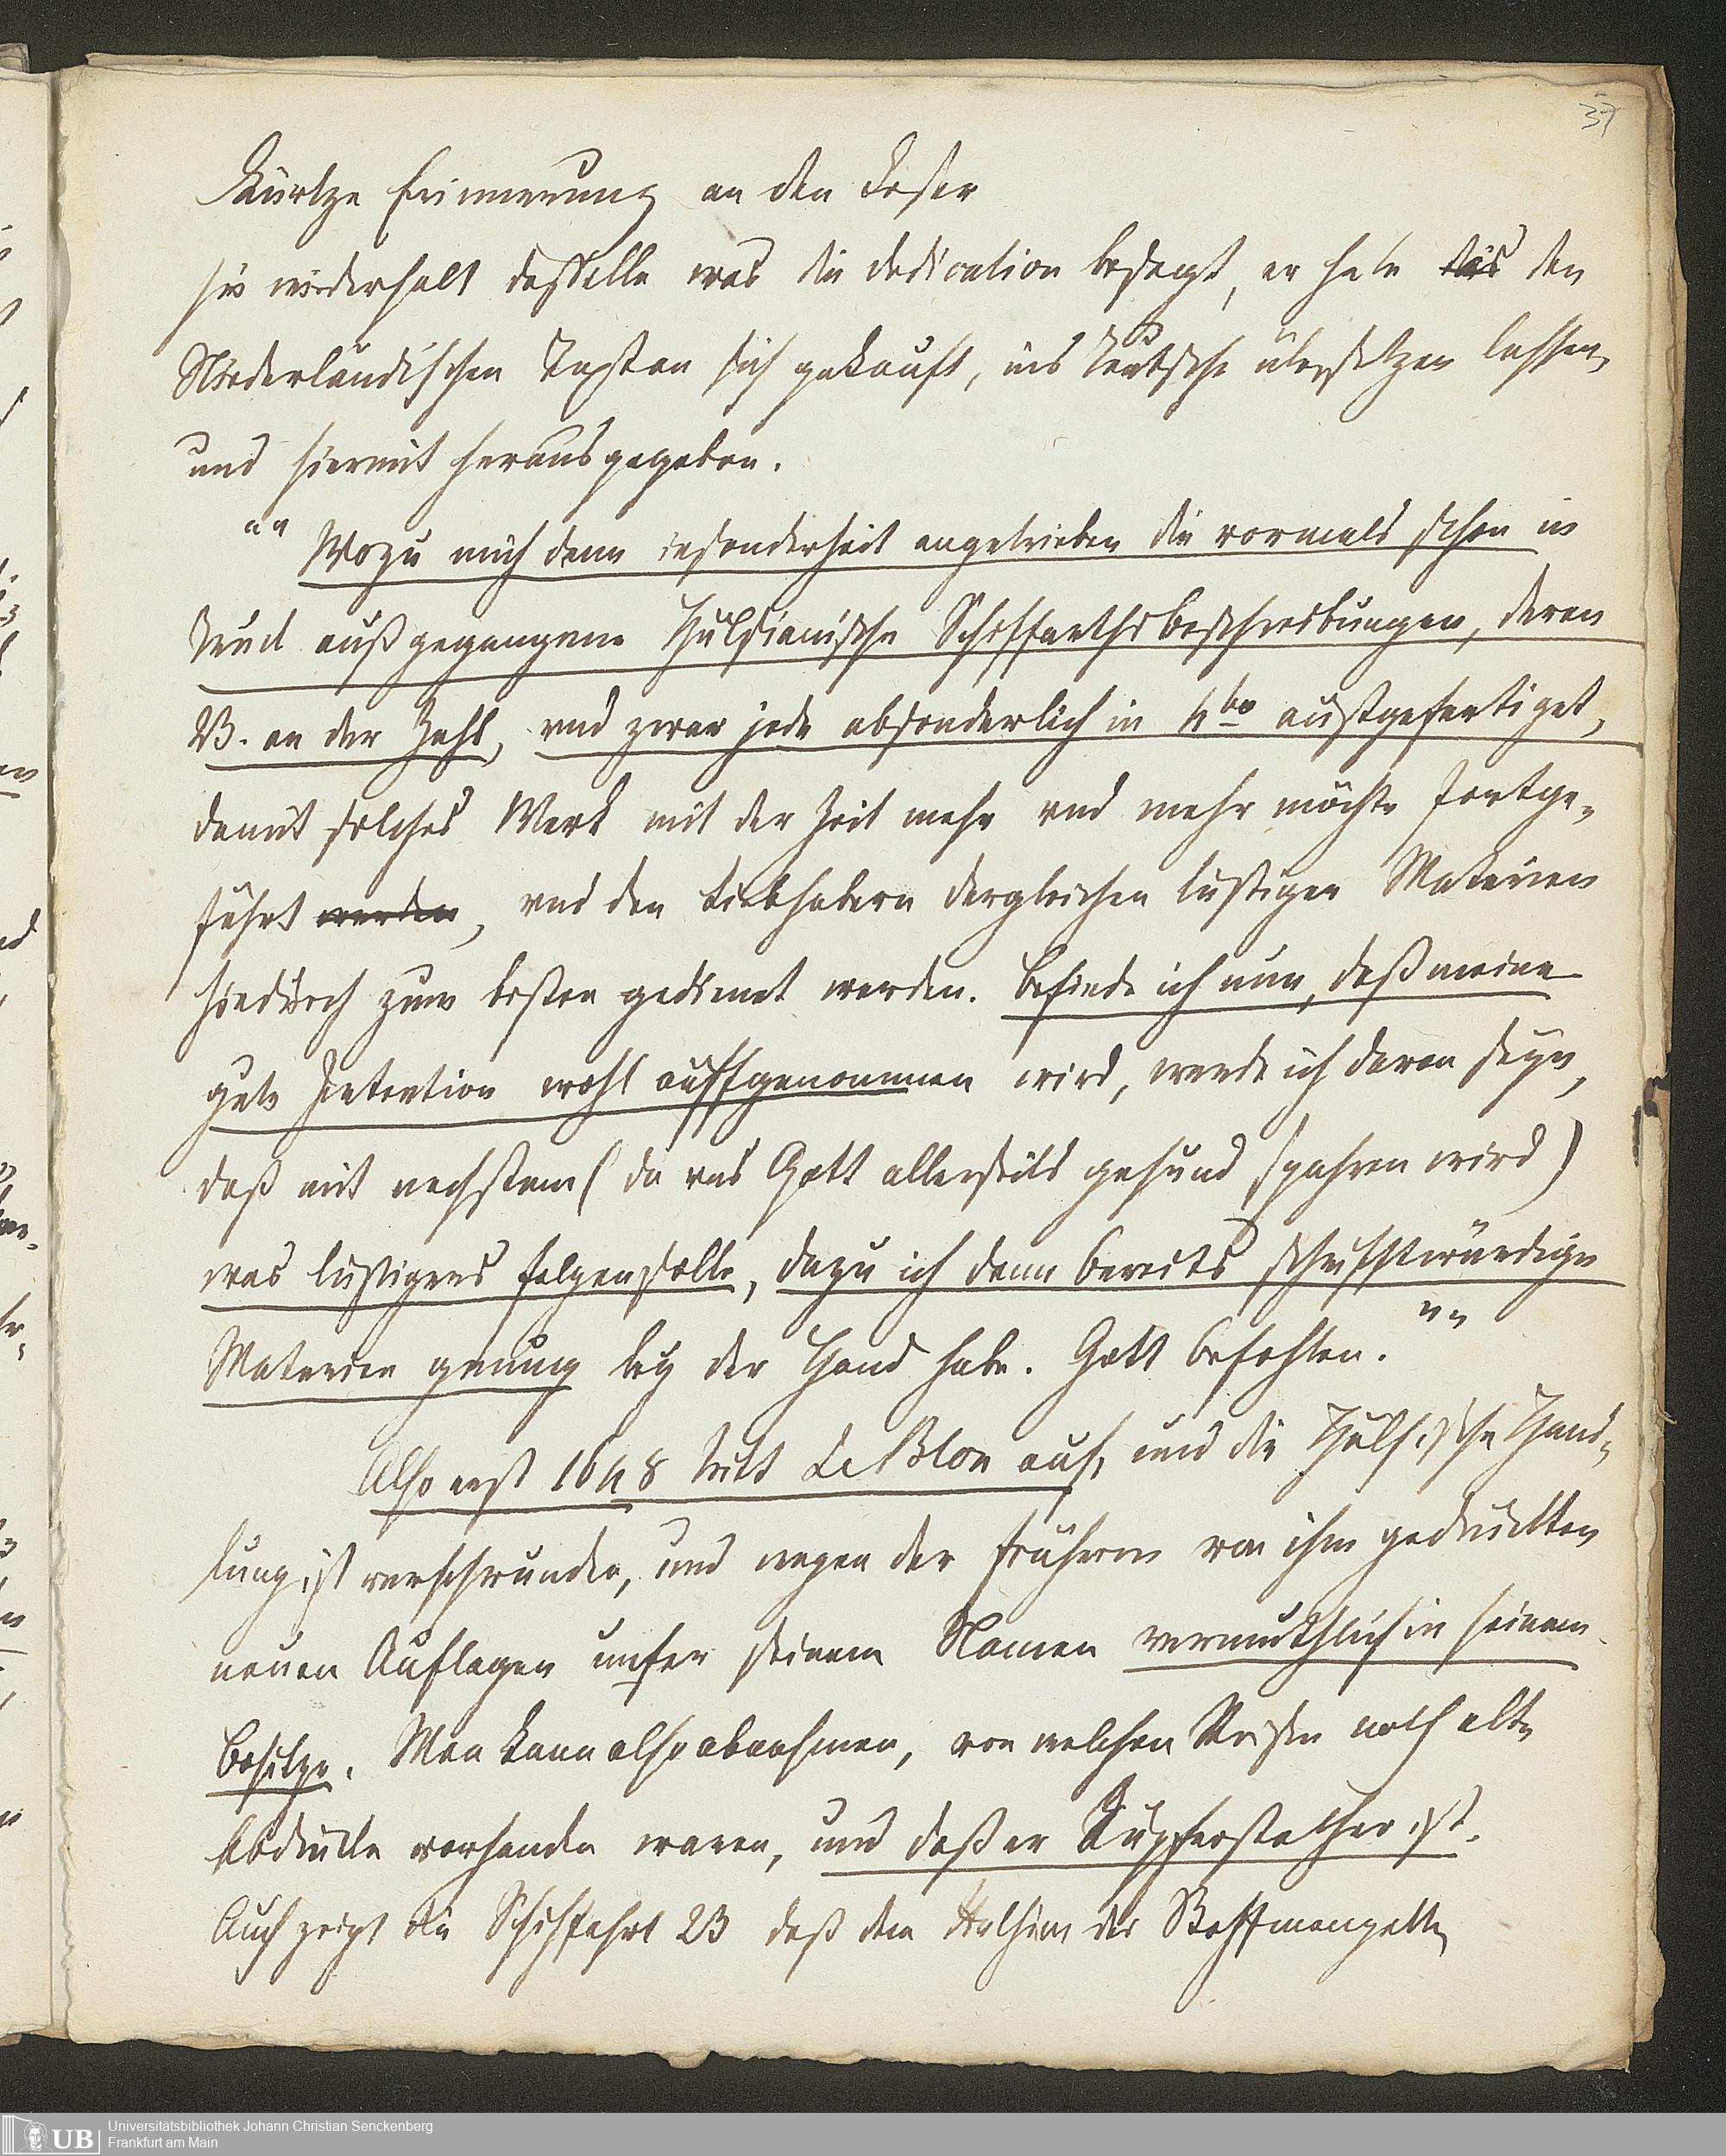 37
Kürtze Erinnerung an den Leser
hie wiederholt desselbe was die dedication besagt, er habe das den
Niederländischen Texten sich gekauft, ins Teutsche übersetzen lassen,
und hiermit herausgegeben.
"" Wozu mich denn insonderheit angetrieben die vormals schon in
Truck außgegangene Hulsianische Schiffarthsbeschreibungen, deren
23. an der Zahl, vnd zwar jede absonderlich in 4to austgefertiget,
damit solches Werk mit der Zeit mehr vnd mehr möchte fortge-
führt werden, vnd den Liebhabern dergleichen lustigen Materien
hiedurch zum besten gedienet werden. Befinde ich nun, daß meine
gute Intention wohl auffgenommen wird, werde ich daran seyn,
daß mit nechstem (da vns Gott allerseits gesund spahren wird)
was lustigers folgen solle, dazu ich denn bereits schrifftwürdige
Materien gnung bey der Hand habe. Gott befohlen. ""
Also erst 1648 tritt Le Blon auf, und die Hülsische Hand-
lung ist verschwunden, und wegen der frühern von ihm gedruckten
neuen Auflagen unter seinem Namen vermuthlich in seinem
Besitze. Man kann also abnehmen, von welchen Reisen noch alte
Abdrücke vorhanden waren, und daß er Kupferstecher ist.
Auch zeigt die Schiffahrt 23 daß den Hulsen der Stoff mangelte
Universitätsbibliothek Johann Christian Senckenberg
Frankfurt am Main
UB